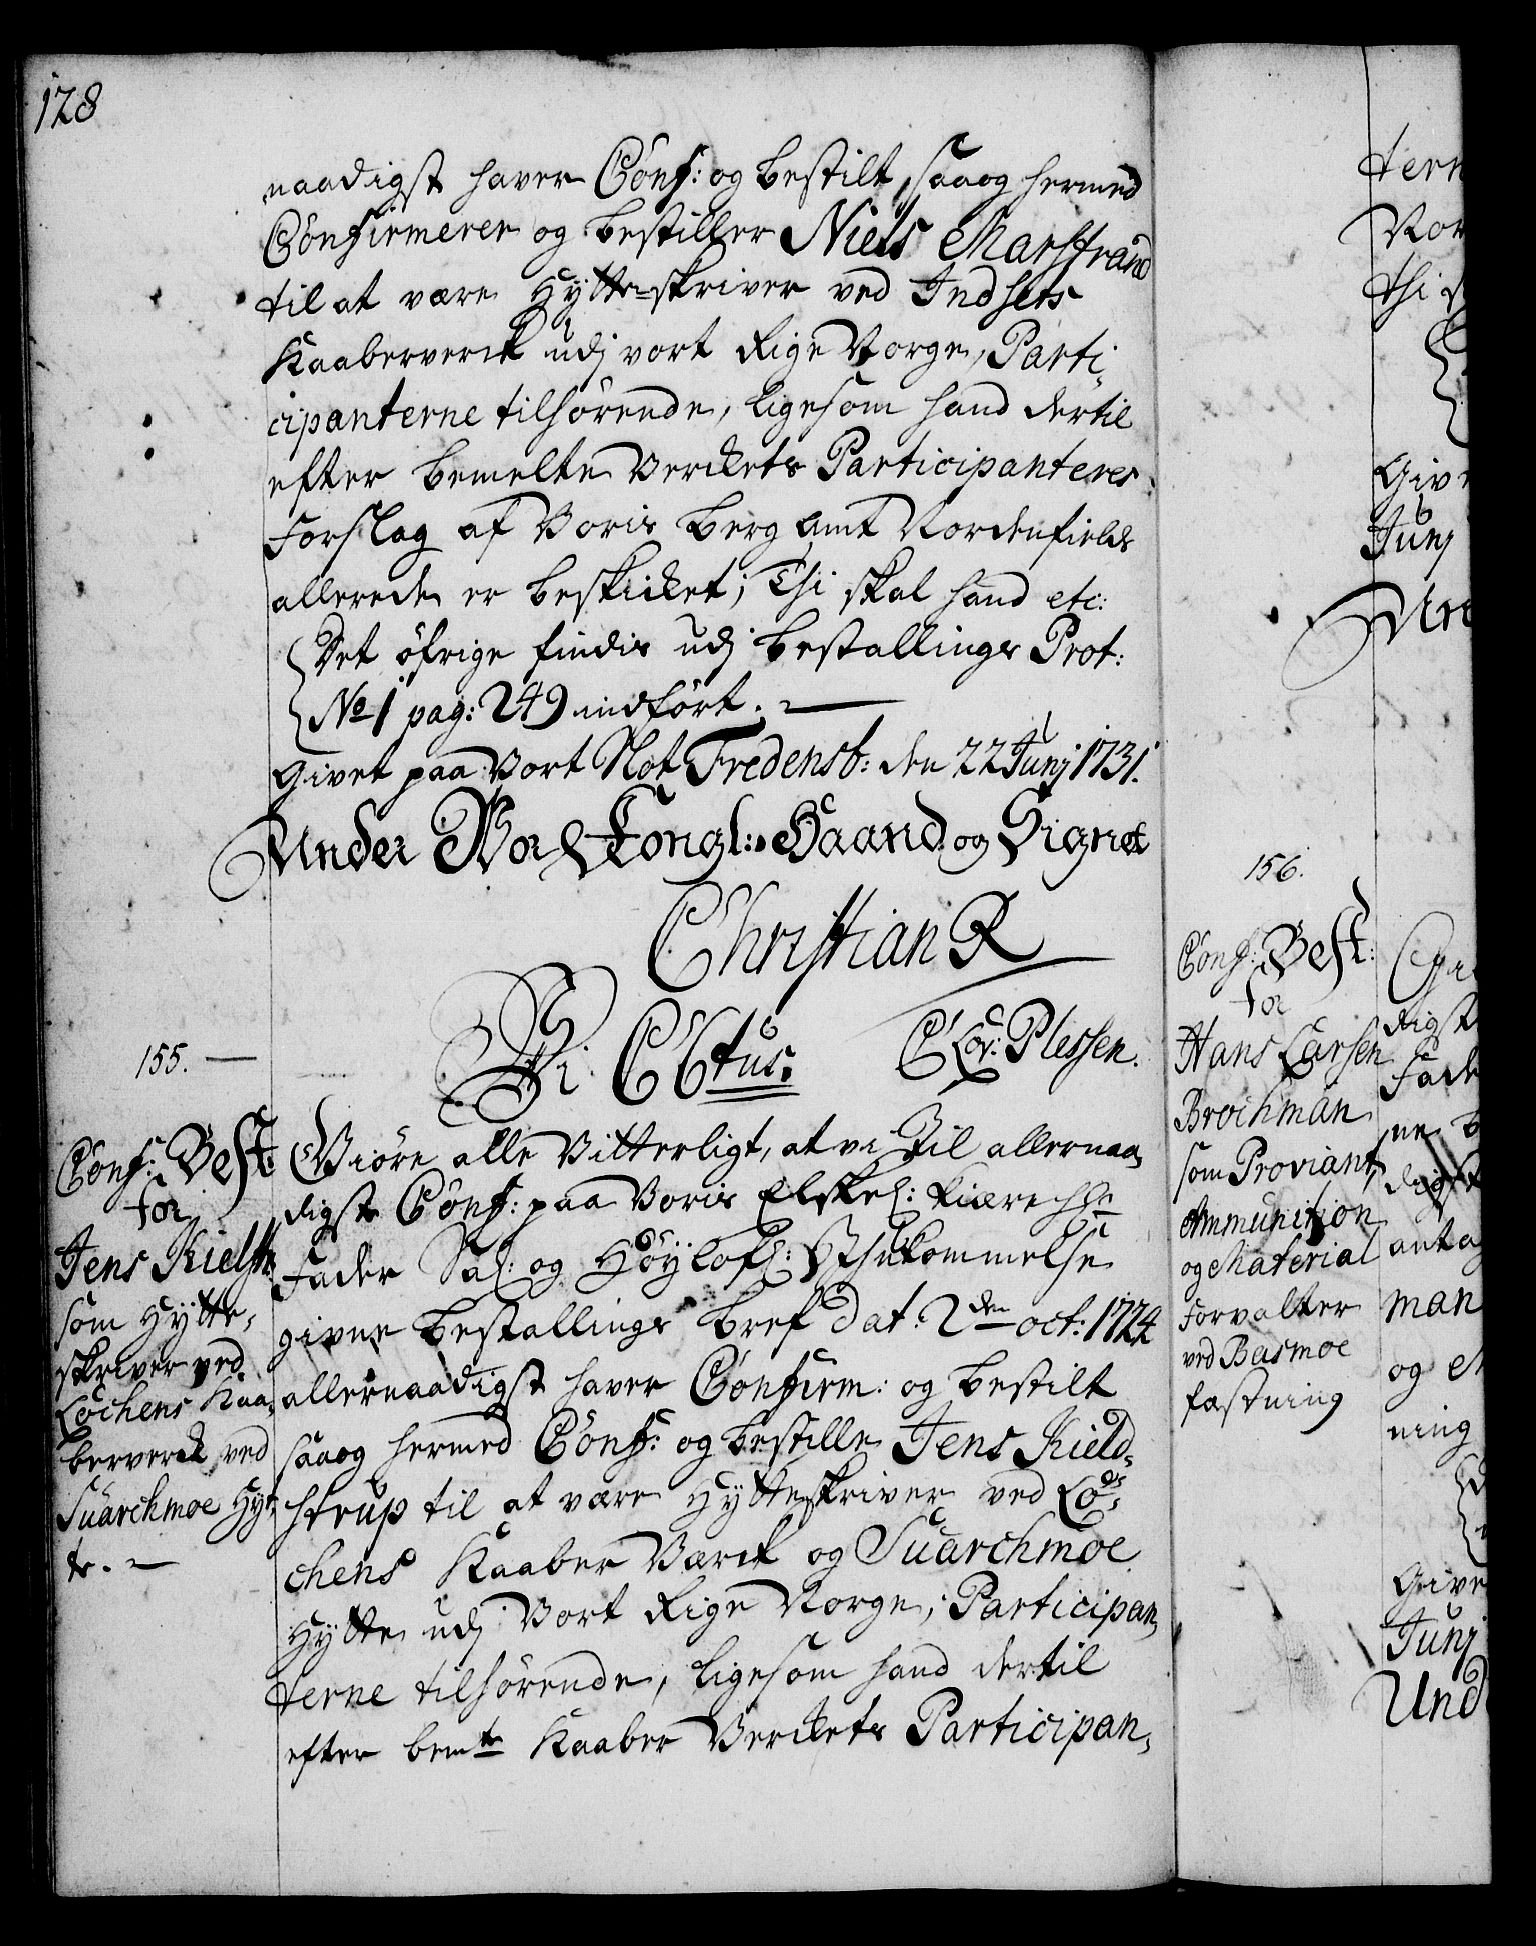 128
naadigst haver Conf: og bestilt, saaog hermed
Confirmerer og bestiller Niels Marstrand
til at være Hytteskriver ved Indsets
Kaaberverck udj vort Rige Norge, Parti-
cipanterne tilhørende, ligesom hand dertil
efter bemelte Verckets Participanteres
Forslag af Voris Berg Amt Nordenfields
allerede er beskicket; Thi skal hand etc:
Det øfrige findis udj bestallings Prot:
No 1 pag: 249 indført.
Givet paa Vort Slot Fredensb: den 22 Junj 1731.
Under Vor Kongl: Haand og Signet
Christian R
CAv: Plessen.
155.
Conf: Best:
for
Jens Kielst:
som Hytte-
skriver ved
Løchens Kaa-
berverck ved
Suarchmoe Hyt-
te.
Giøre alle Vitterligt, at vi Til allernaa-
digste Conf: paa Voris Elskel: kiære Hr
Fader Sal: og Høylofl: Ihukommelse
givne bestallings bref dat: 2den oct: 1724
allernaadigst haver Confirm: og bestilt
saaog hermed Conf: og bestille Jens Kield-
strup til at være Hytteskriver ved Lø-
chens Kaaber Værck og Suarchmoe
Hytte udj Vort Rige Norge, Participan-
terne tilhørende, ligesom hand dertil
efter bemte Kaaber Verckets Participan-
156.
Conf: Best:
for
Hans Larsen
Brochman
som Proviant,
Ammunition
og Material
Forvalter
ved Basmoe
fæstning
tern
Nor
thi s
Give
Junj
digst
Fade
ne b
digst
antag
man
og M
ning
Give
Junj
Und